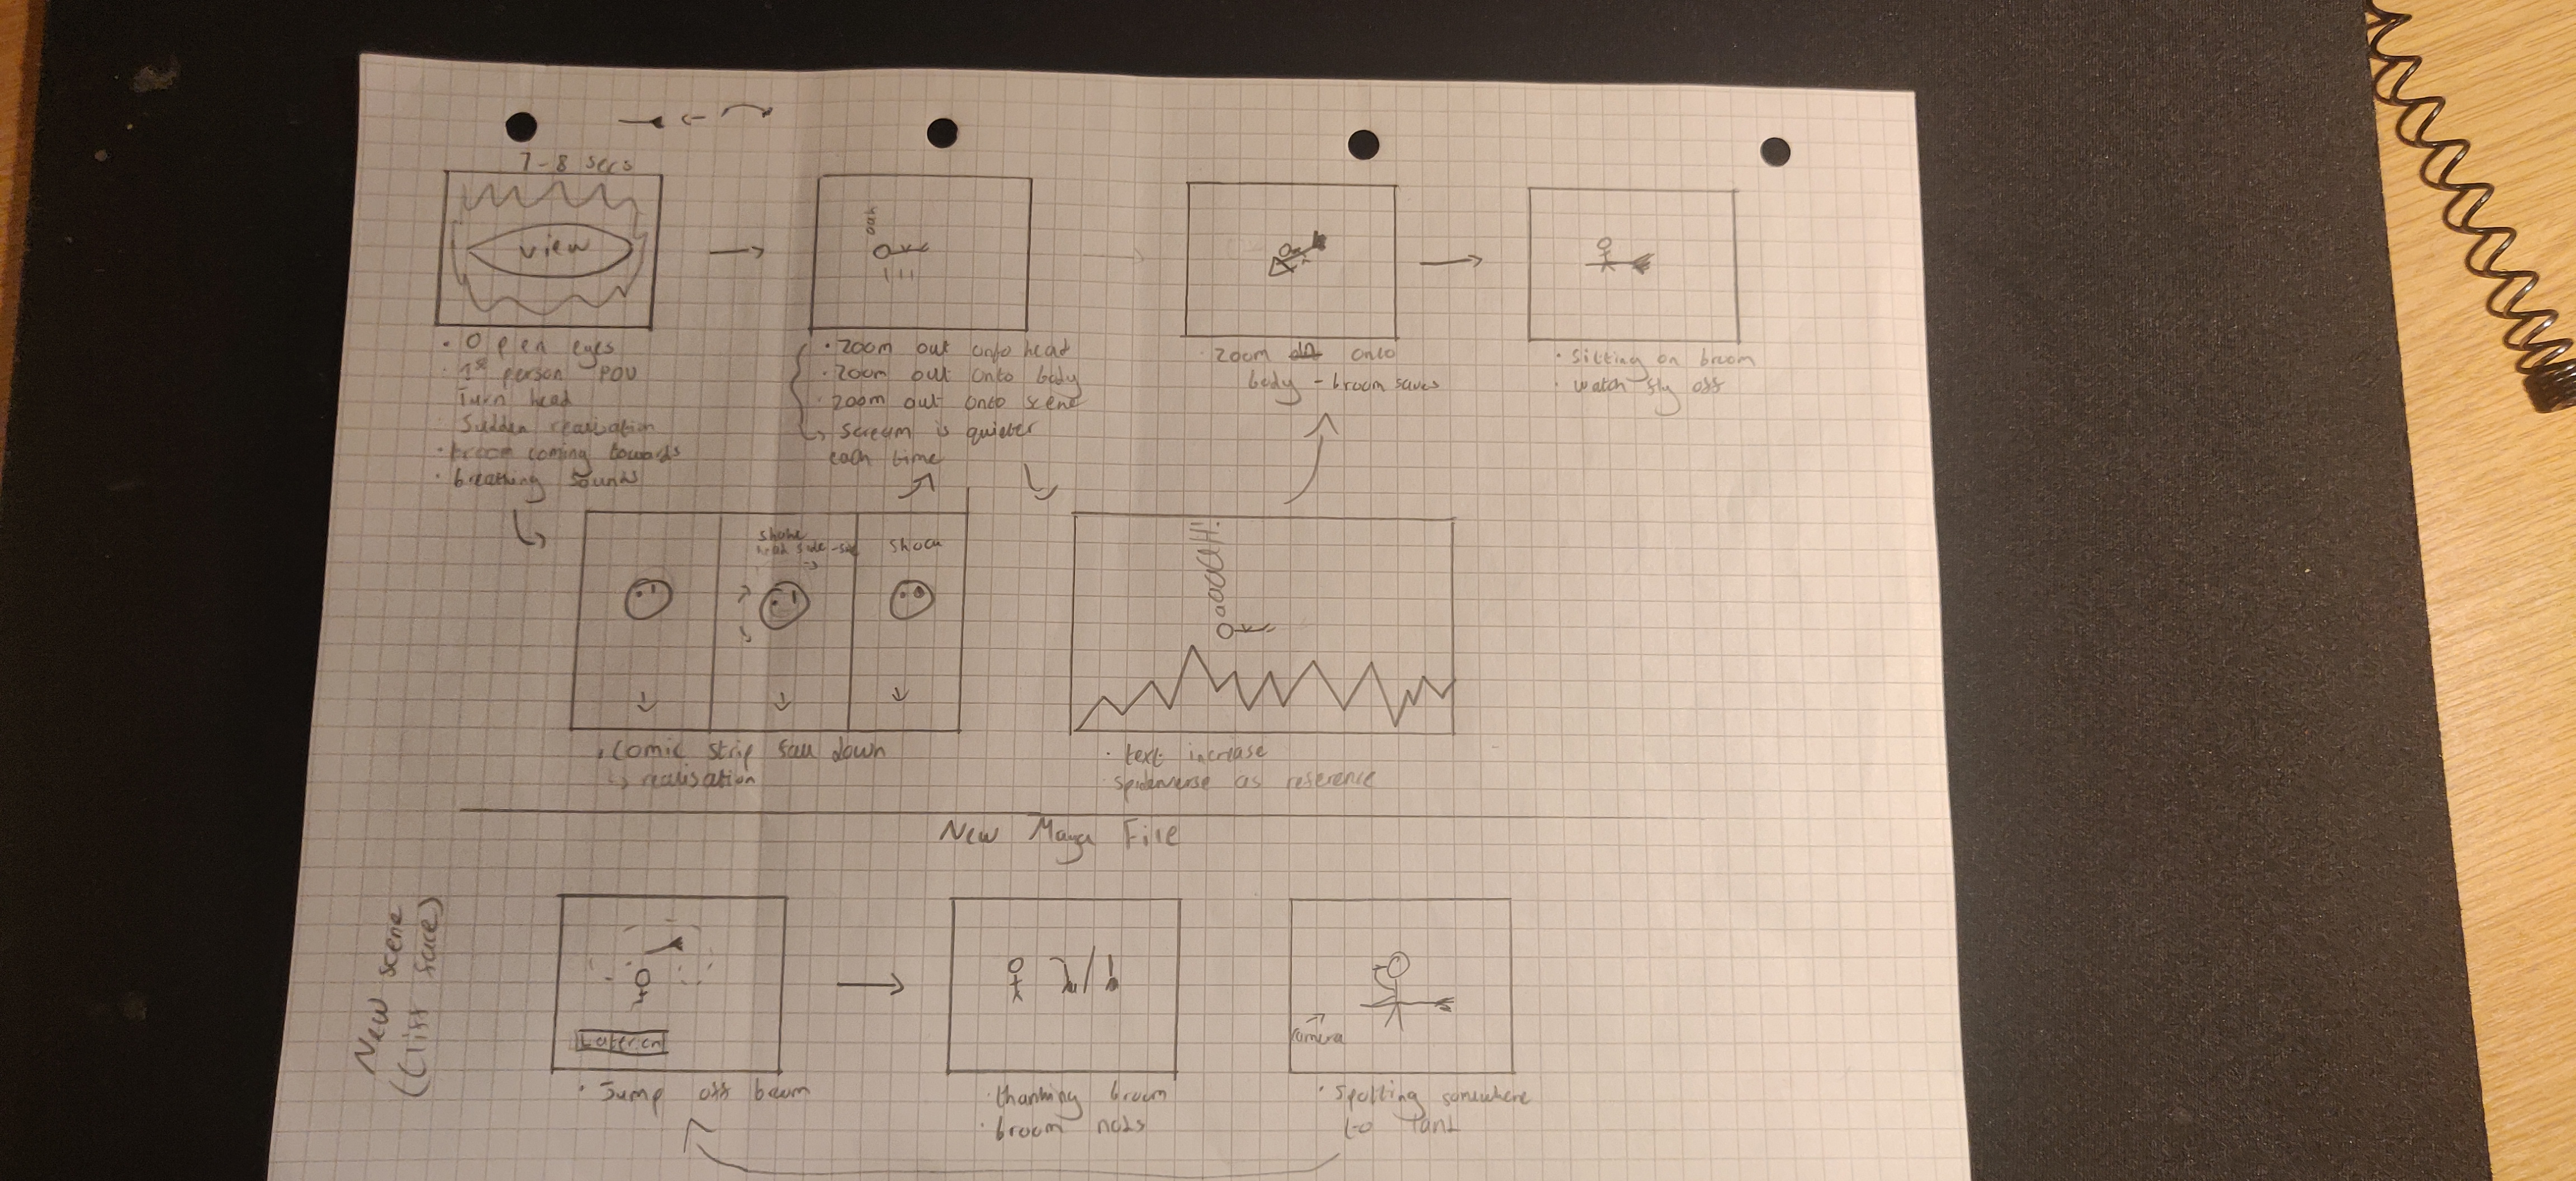 7-8 secs
view
• Open eyes
• 1st person POV
Turn head
Sudden realisation
• broom coming towards
• breathing sounds
aah
• Zoom out onto head
• Zoom out onto body
• Zoom out onto scene
↳ Scream is quieter
each time
Zoom onto
body - broom saves
• Sitting on broom
• watch fly off
shake
head side-side
shock
• Comic strip fall down
↳ realisation
aaaaAAH!
• text increase
spiderverse as reference
New Maya File
New scene
(Cliff face)
Later on
• Jump off broom
• thanking broom
• broom nods
camera
• Spotting somewhere
to land